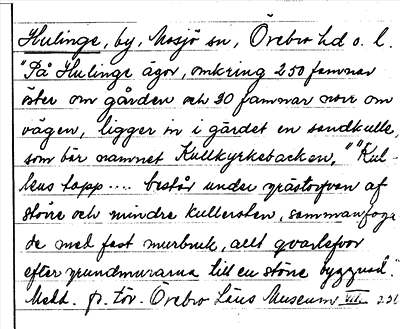 Hulinge, by, Mosjö sn, Örebro hd o. l.
"På Hulinge ägor, omkring 250 famnar
öster om gården och 90 famnar norr om
vägen, ligger in i gärdet en sandkulle,
som bär namnet Kullkyrkebacken." "Kul-
lens topp .... består under grästorfven af
större och mindre kullersten, sammanfoga
de med fast murbruk, allt qvarlefvor
efter grundmurarna till en större byggnad."
Medd. fr. för. Örebro Läns Museum VII